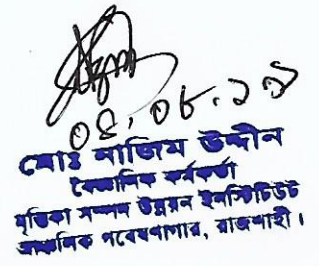 ০৪.০৮.১৯
মোঃ নাজিম উদ্দীন
বৈজ্ঞানিক কর্মকর্তা
মৃত্তিকা সম্পদ উন্নয়ন ইনস্টিটিউট
আঞ্চলিক গবেষণাগার, রাজশাহী।